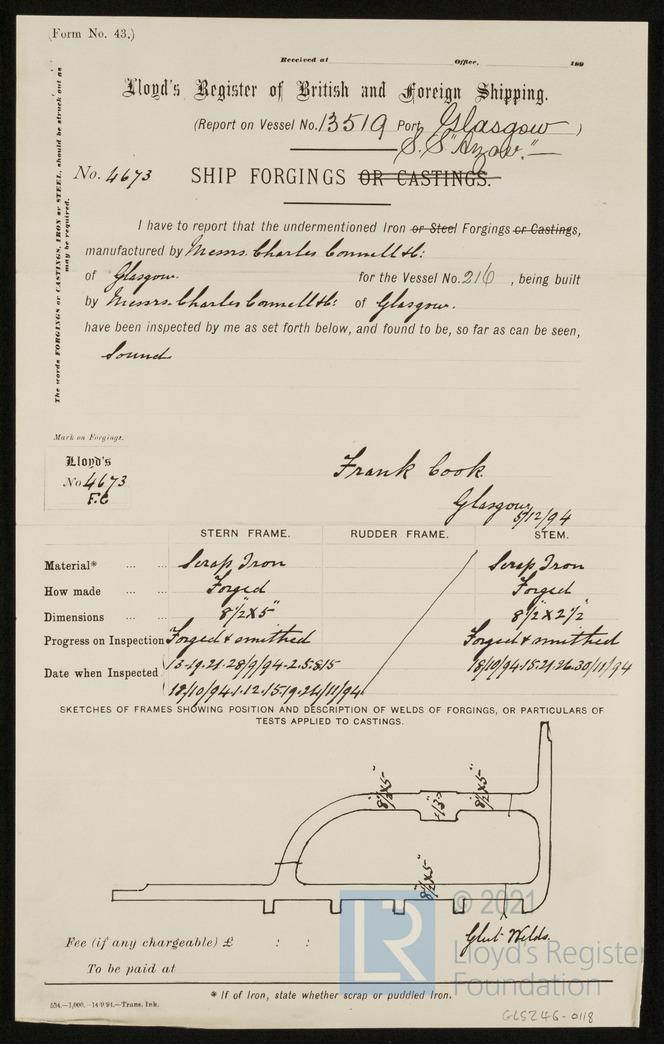 (Form No. 43.)
Received at Office, 189
Lloyd's Register of British and Foreign Shipping.
(Report on Vessel No. 13519 Port Glasgow )
S.S. "Azov."
No. 4673 SHIP FORGINGS OR CASTINGS.
The words FORGINGS or CASTINGS, IRON or STEEL, should be struck out as
may be required.
I have to report that the undermentioned Iron or Steel Forgings or Castings,
manufactured by Messrs. Charles Connell & Co:
of Glasgow. for the Vessel No. 216 , being built
by Messrs. Charles Connell & Co: of Glasgow.
have been inspected by me as set forth below, and found to be, so far as can be seen,
Sound
Mark on Forgings.
Lloyd's
No 4673
F.C
Frank Cook.
Glasgow,
5/12/94
STERN FRAME. RUDDER FRAME. STEM.
Material* ... ... Scrap Iron Scrap Iron
How made ... ... Forged Forged
Dimensions ... ... 8½"x5" 8½"x2½
Progress on Inspection Forged & smithed Forged & smithed
Date when Inspected 13-19-21-28/9/94-2.5.8.15 18/10/94.15.21.26.30/11/94
18/10/94.1.12.15.19.24/11/94
SKETCHES OF FRAMES SHOWING POSITION AND DESCRIPTION OF WELDS OF FORGINGS, OR PARTICULARS OF
TESTS APPLIED TO CASTINGS.
8½"x5"
13"
8½"x5"
8½"x5"
Glut Welds.
Fee (if any chargeable) £ : :
To be paid at
* If of Iron, state whether scrap or puddled Iron.
534.—1,000.—14/9/94.—Trans. Ink.
GLS246-0118
LR
© 2021
Lloyd's Register
Foundation